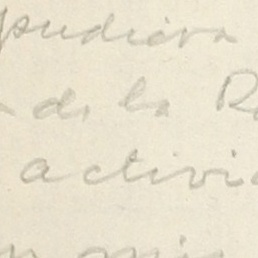 pudiera
de la R
activi